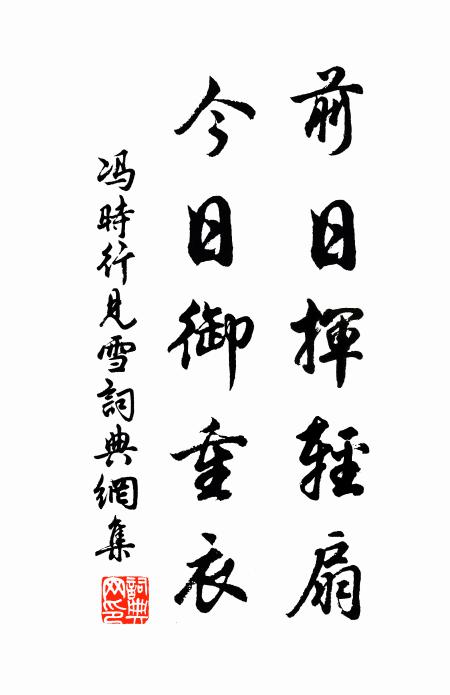 前日揮輕扇
今日御重衣
冯時行見雪詞典網集
詞典網印